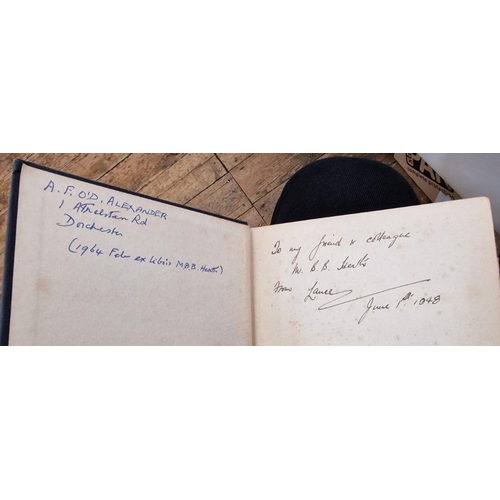 A. F. O'D. ALEXANDER
1 Athelstan Rd
Dorchester
(1964 Feb ex libris M.B.B. Heath)
To my friend & colleague
M. B. B. Heath
From Lance
June 1st 1948